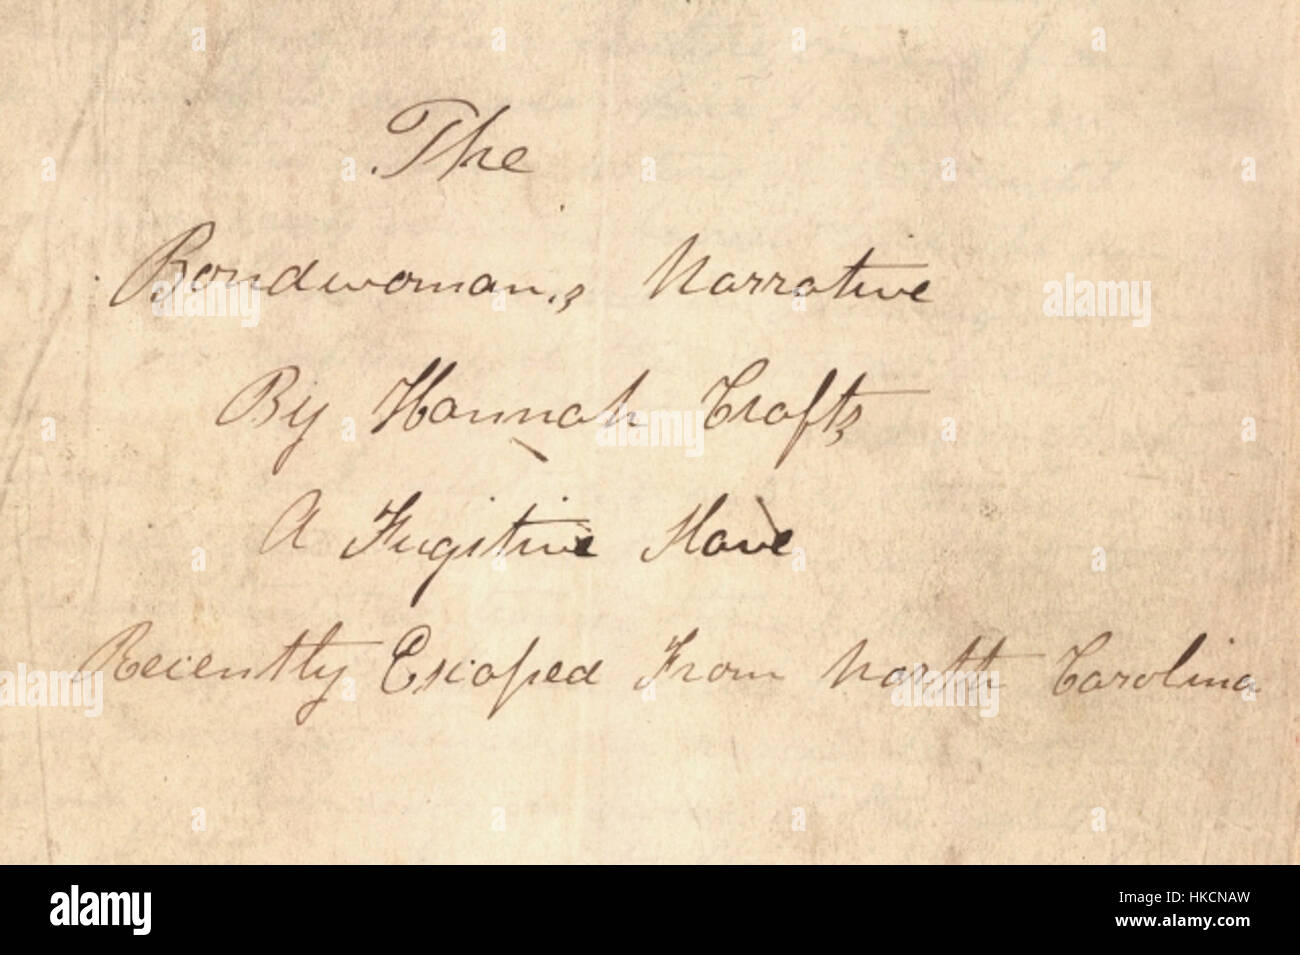 The
Bondwoman's Narrative
By Hannah Crafts
A Fugitive Slave
Recently Escaped From North Carolina
alamy
alamy
Image ID: HKCNAW
www.alamy.com